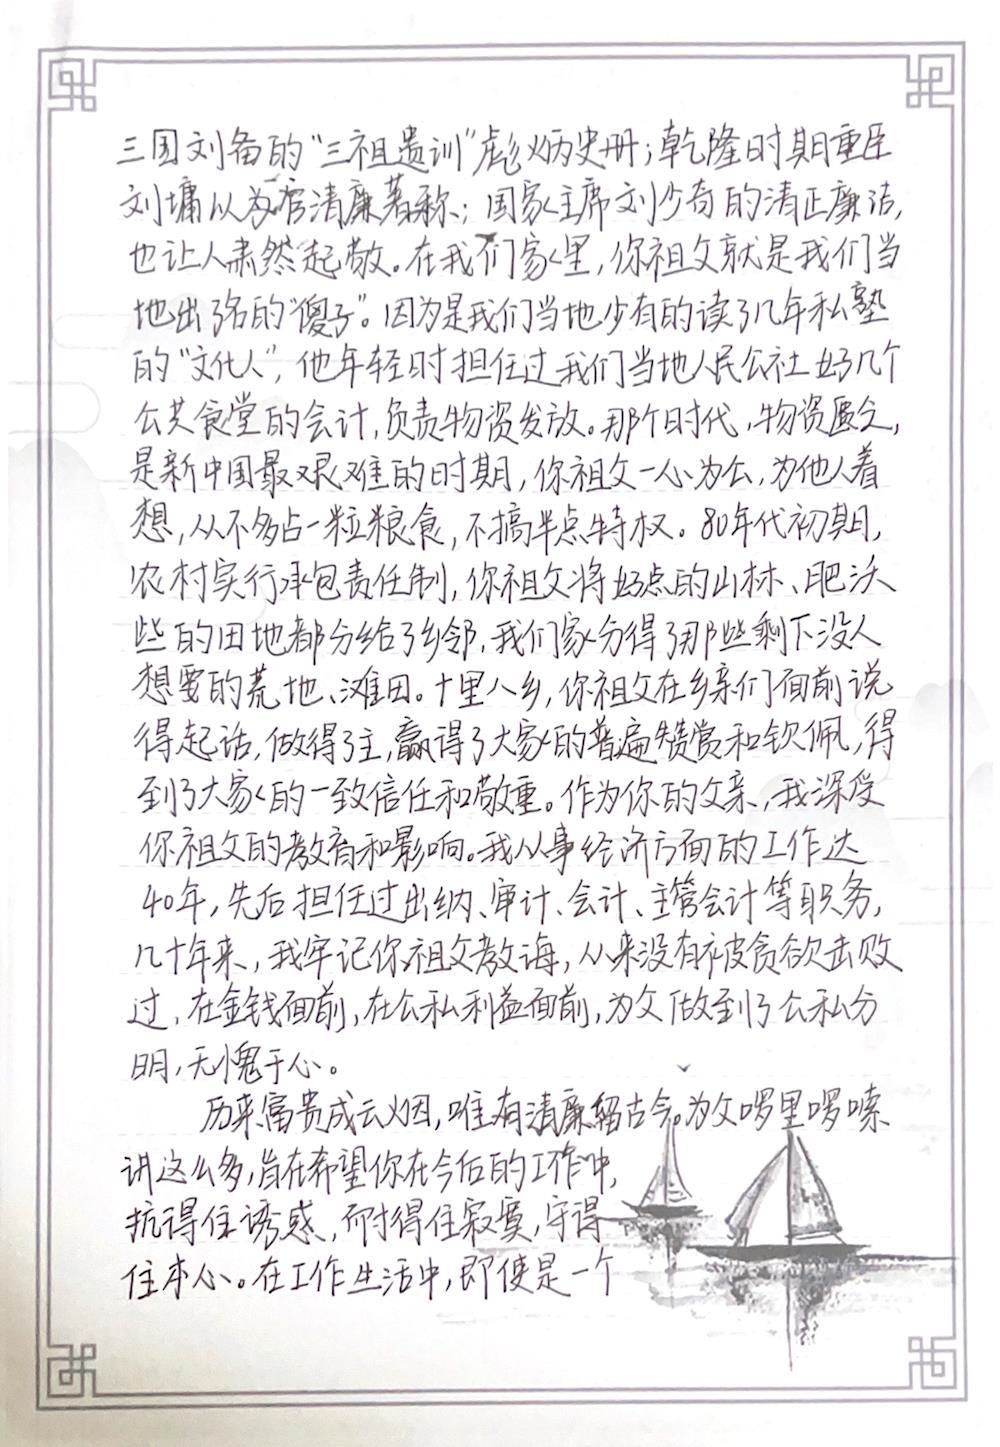 三国刘备的“三祖遗训”彪炳史册；乾隆时期重臣
刘墉以为官清廉著称；国家主席刘少奇的清正廉洁，
也让人肃然起敬。在我们家里，你祖父就是我们当
地出了名的“傻子”。因为是我们当地少有的读了几年私塾
的“文化人”，他年轻时担任过我们当地人民公社好几个
公共食堂的会计，负责物资发放。那个时代，物资匮乏，
是新中国最艰难的时期，你祖父一心为公，为他人着
想，从不多占一粒粮食，不搞半点特权。80年代初期，
农村实行承包责任制，你祖父将好点的山林、肥沃
些的田地都分给了乡邻，我们家分得了那些剩下没人
想要的荒地、滩田。十里八乡，你祖父在乡亲们面前说
得起话，做得了主，赢得了大家的普遍赞赏和钦佩，得
到了大家的一致信任和敬重。作为你的父亲，我深受
你祖父的教育和影响。我从事经济方面的工作达
40年，先后担任过出纳、审计、会计、主管会计等职务，
几十年来，我牢记你祖父教诲，从来没有被贪欲击败
过，在金钱面前，在公私利益面前，为父做到了公私分
明，无愧于心。
历来富贵成云烟，唯有清廉留古今。为父啰里啰嗦
讲这么多，旨在希望你在今后的工作中，
抗得住诱惑，耐得住寂寞，守得
住本心。在工作生活中，即使是一个